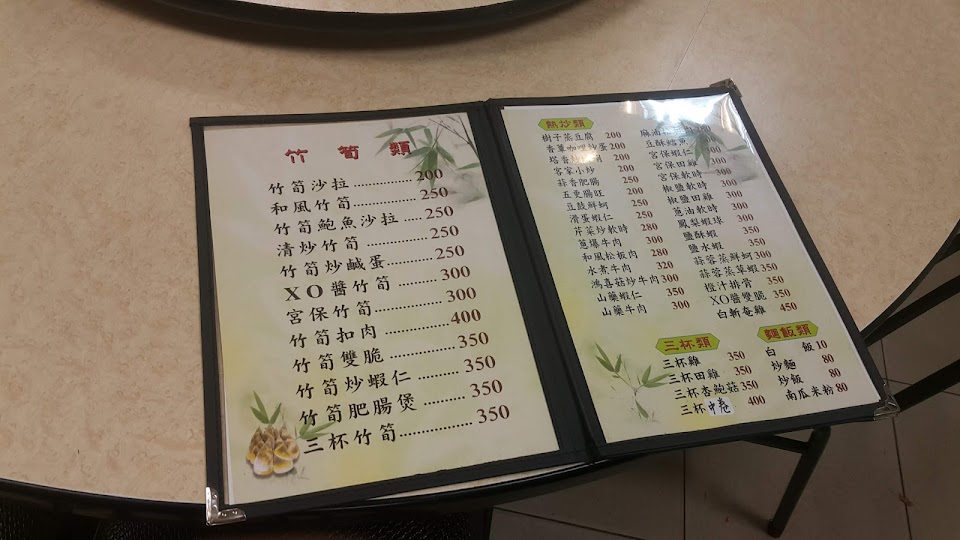 竹筍類
竹筍沙拉..............200
和風竹筍..............250
竹筍鮑魚沙拉.....250
清炒竹筍..............250
竹筍炒鹹蛋...........250
XO醬竹筍.........300
宮保竹筍..............300
竹筍扣肉..............400
竹筍雙脆..............350
竹筍炒蝦仁.........350
竹筍肥腸煲..........350
三杯竹筍................350
熱炒類
樹子蒸豆腐 200
200
200
客家小炒 200
蒜香肥腸 250
五更腸旺 200
豆豉鮮蚵 250
滑蛋蝦仁 250
芹菜炒軟時 280
蔥爆牛肉 300
和風松板肉 280
水煮牛肉 320
鴻喜菇炒牛肉 300
山藥蝦仁 350
山藥牛肉 300
麻油
豆酥鱈魚
宮保蝦仁
宮保田雞 300
宮保軟時 300
椒鹽軟時 300
椒鹽田雞 300
蔥油軟時 300
鳳梨蝦球 300
鹽酥蝦 350
鹽水蝦 350
蒜蓉蒸鮮蚵 300
蒜蓉蒸草蝦 350
橙汁排骨 350
XO醬雙脆 350
白斬奄雞 450
三杯類
三杯雞 350
三杯田雞 350
三杯杏鮑菇 350
三杯中卷 400
麵飯類
白飯 10
炒麵 80
炒飯 80
南瓜米粉 80